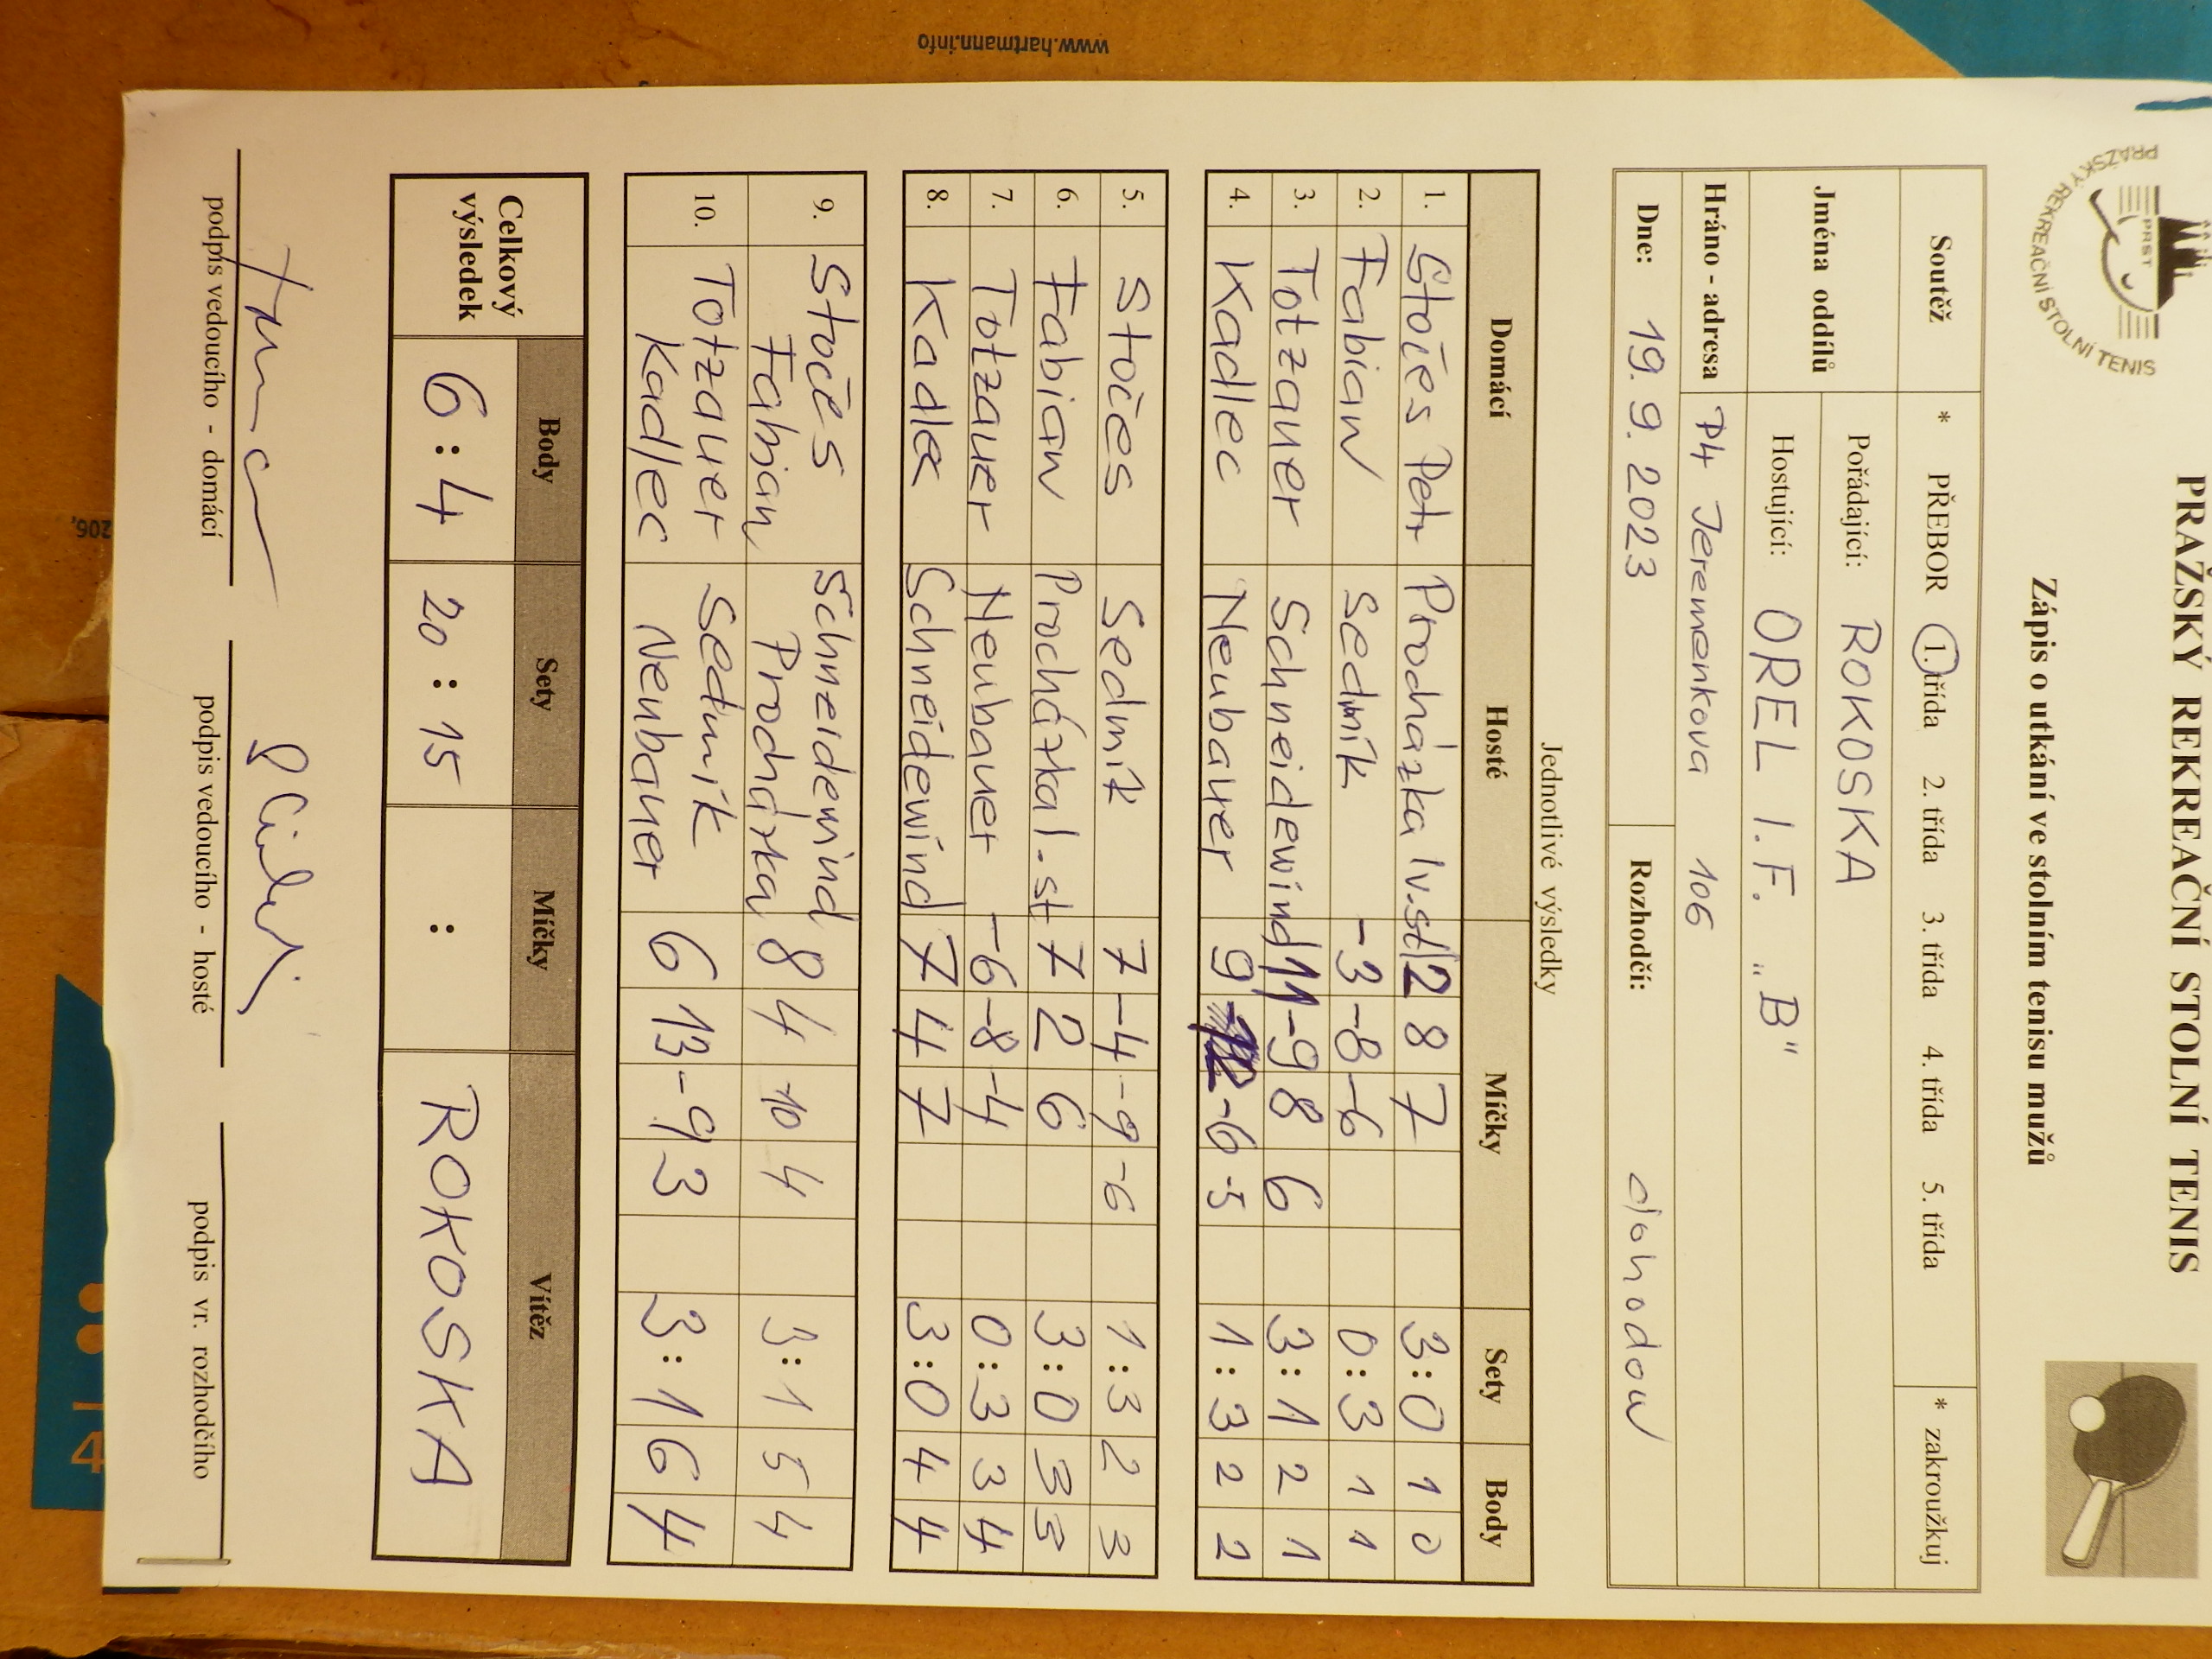 PRAŽSKÝ REKREAČNÍ STOLNÍ TENIS
PRAŽSKÝ REKREAČNÍ STOLNÍ TENIS
PRST
Zápis o utkání ve stolním tenisu mužů
Soutěž * PŘEBOR 1. třída 2. třída 3. třída 4. třída 5. třída * zakroužkuj
Jména oddílů Pořádající: ROKOSKA
Hostující: OREL I.F. "B"
Hráno - adresa P4 Jeremenkova 106
Dne: 19. 9. 2023 Rozhodčí: dohodou
Jednotlivé výsledky
Domácí Hosté Míčky Sety Body
1. Stočes Petr Procházka Iv.st 12 8 7 3:0 1 0
2. Fabian Sedmík -3 -8 -6 0:3 1 1
3. Totzauer Schneidewind 11 -9 8 6 3:1 2 1
4. Kadlec Neubauer 9 -6 -5 1:3 2 2
5. Stočes Sedmík 7 -4 -9 -6 1:3 2 3
6. Fabian Procházka I.st 7 2 6 3:0 3 3
7. Totzauer Neubauer -6 -8 -4 0:3 3 4
8. Kadlec Schneidewind 7 4 7 3:0 4 4
9. Stočes Schneidewind 8 4 -10 4 3:1 5 4
Fabian Procházka
10. Totzauer Sedmík 6 13 -9 3 3:1 6 4
Kadlec Neubauer
Celkový výsledek Body Sety Míčky Vítěz
6:4 20:15 : ROKOSKA
podpis vedoucího - domácí podpis vedoucího - hosté podpis vr. rozhodčího
www.hartmann.info
206,
4